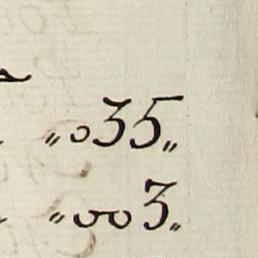 „035„
„003„